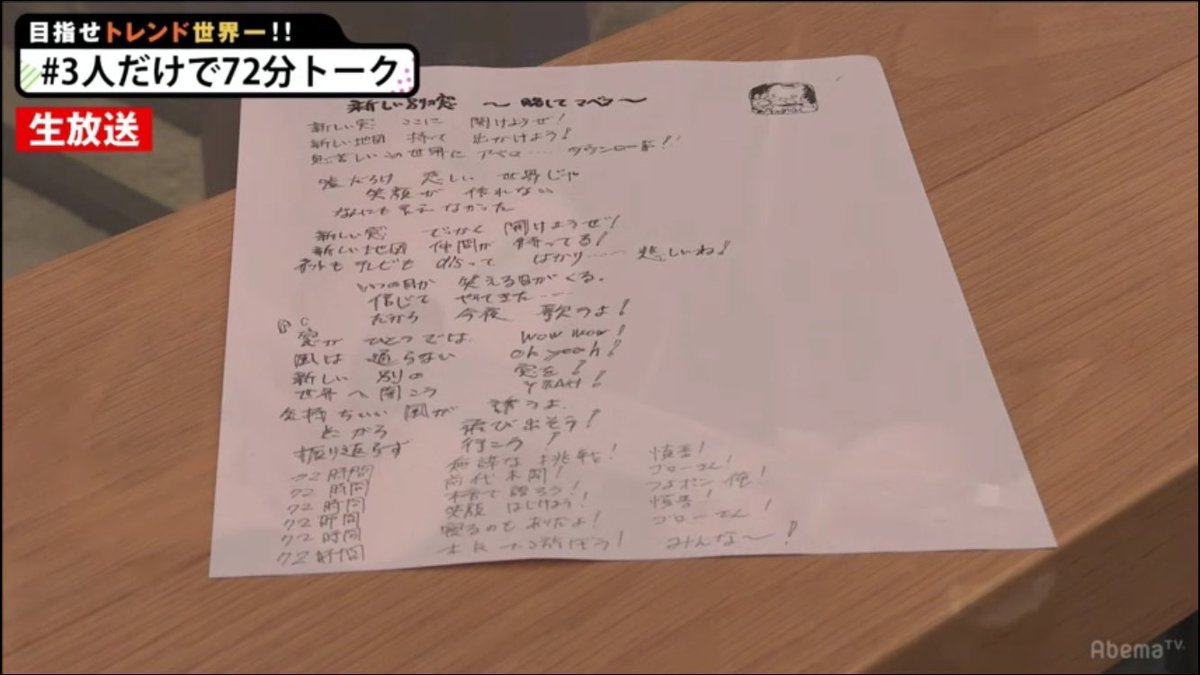 目指せトレンド世界一!!
#3人だけで72分トーク
生放送
新しい別の窓 〜略してマベツ〜
新しい窓 ここに 開けようぜ!
新しい地図 持って 出かけよう!
息苦しいこの世界に アベマ…… ダウンロード!!
嘘だらけ 悲しい 世界じゃ
笑顔が 作れない
なんにも 見えなかった
新しい窓 でっかく 開けようぜ!
新しい地図 仲間が 待ってる!
ネットも テレビも ばかり…… 悲しいね!
いつの日か 笑える日がくる。
信じて やってきた……
だから 今夜 歌うのよ!
窓が ひとつでは、 wow wow!
風は 通らない oh yeah!
新しい 別の 窓を!
世界へ 開こう YEAH!
気持ちいい 風が 誘うよ。
とびら 飛び出そう!
振り返らず 行こう!
72時間 無謀な 挑戦! 慎吾!
72時間 前代未聞! ゴローさん!
72時間 本音で 語ろう! つよポン 俺!
72時間 笑顔 はじけよう! 慎吾!
72時間 寝るのも ありだよ! ゴローさん!
72時間 遊ぼう! みんな〜!
AbemaTV